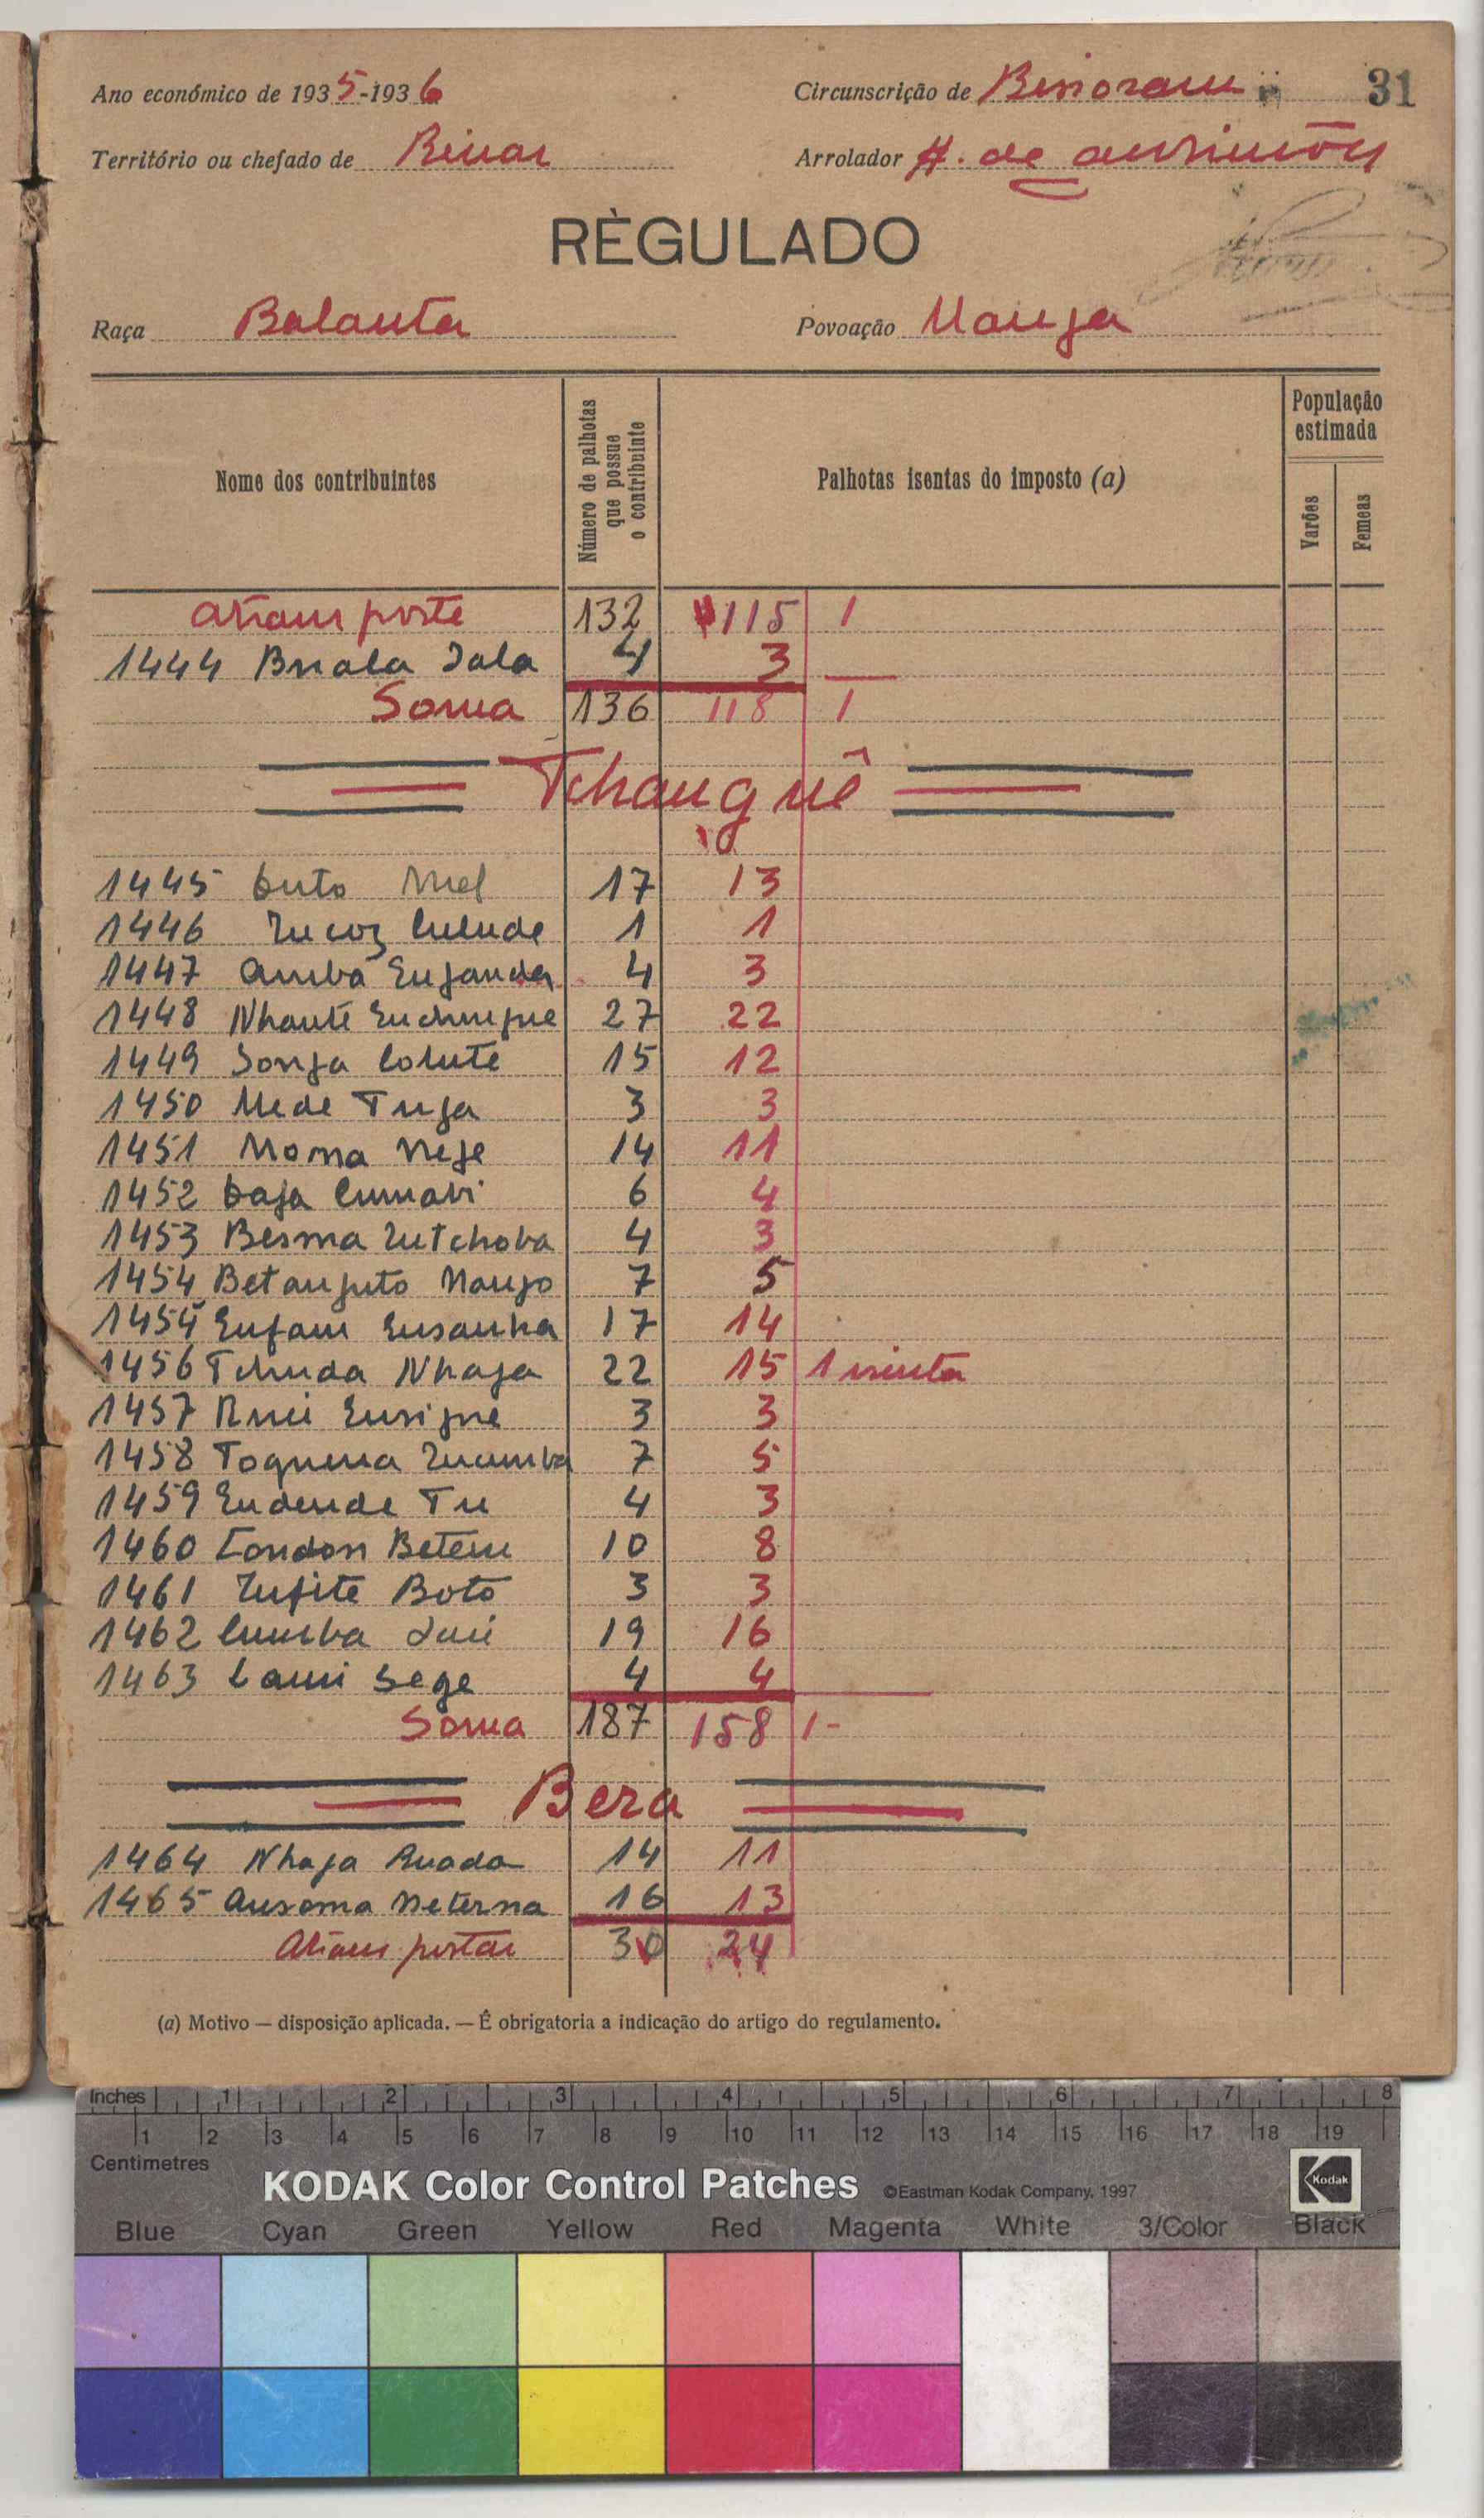 Ano económico de 1935-1936
Circunscrição de Bissoram
31
Território ou chefado de Binar
Arrolador A. de
RÈGULADO
Raça Balanta
Povoação Manga
Nome dos contribuintes
Número de palhotas que possue o contribuinte
Palhotas isentas do imposto (a)
População estimada
Varões
Femeas
Transporte 132 115 1
1444 Bnala Dala 4 3
Soma 136 118 1
Tchanguê
1445 Outo Mel 17 13
1446 1 1
1447 Amba Enfanda 4 3
1448 Nhanti 27 22
1449 Sonja Colute 15 12
1450 Mede Tuga 3 3
1451 Moma Nefe 14 11
1452 Daja 6 4
1453 Besma Tutchoba 4 3
1454 Betanguto Nango 7 5
1455 Enfam Ensanha 17 14
1456 Tchuda Nhaga 22 15 1 isenta
1457 3 3
1458 Toquena 7 5
1459 Endende Tu 4 3
1460 London Betem 10 8
1461 Boto 3 3
1462 Cumba 19 16
1463 Lami Sege 4 4
Soma 187 158 1-
Bera
1464 Nhaga Quada 14 11
1465 Ansoma Neterna 16 13
A transportar 30 24
(a) Motivo — disposição aplicada. — É obrigatoria a indicação do artigo do regulamento.
Inches 1 2 3 4 5 6 7 8
1 2 3 4 5 6 7 8 9 10 11 12 13 14 15 16 17 18 19
Centimetres
KODAK Color Control Patches ©Eastman Kodak Company, 1997 Kodak
Blue Cyan Green Yellow Red Magenta White 3/Color Black